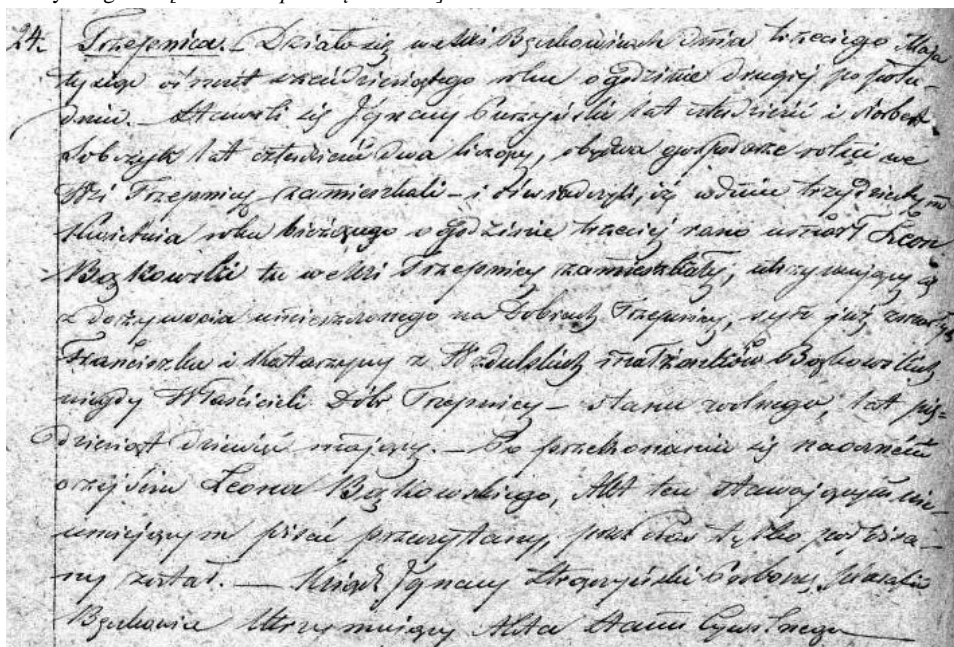 24. Trzepnica. Działo się we Wsi Bęczkowicach dnia trzeciego Maja
tysiąc ośmset sześćdziesiątego roku o godzinie drugiej popołu-
dniu. Stawili się Ignacy lat czterdzieści i Norbert
Sobczyk lat czterdzieści dwa liczący, obydwa gospodarze rolni we
Wsi Trzepnicy zamieszkali – i oświadczyli, iż w dniu trzydziestym
Kwietnia roku bieżącego o godzinie trzeciej rano umarł Leon
Bąkowski tu we Wsi Trzepnicy zamieszkały, utrzymujący się
z dożywocia umieszczonego na Dobrach Trzepnicy, syn już zmarłych
Franciszka i Katarzyny z Wzdulskich małżonków Bąkowskich
niegdy Właścicieli Dóbr Trzepnicy – stanu wolnego, lat pięć-
dziesiąt dziewięć mający. – Po przekonaniu się naocznem o
zejściu Leona Bąkowskiego, Akt ten stawającym nie-
umiejącym pisać przeczytany, przez Nas tylko podpisa-
ny został. — Ksiądz Ignacy Proboszcz Parafii
Utrzymujący Akta Stanu Cywilnego